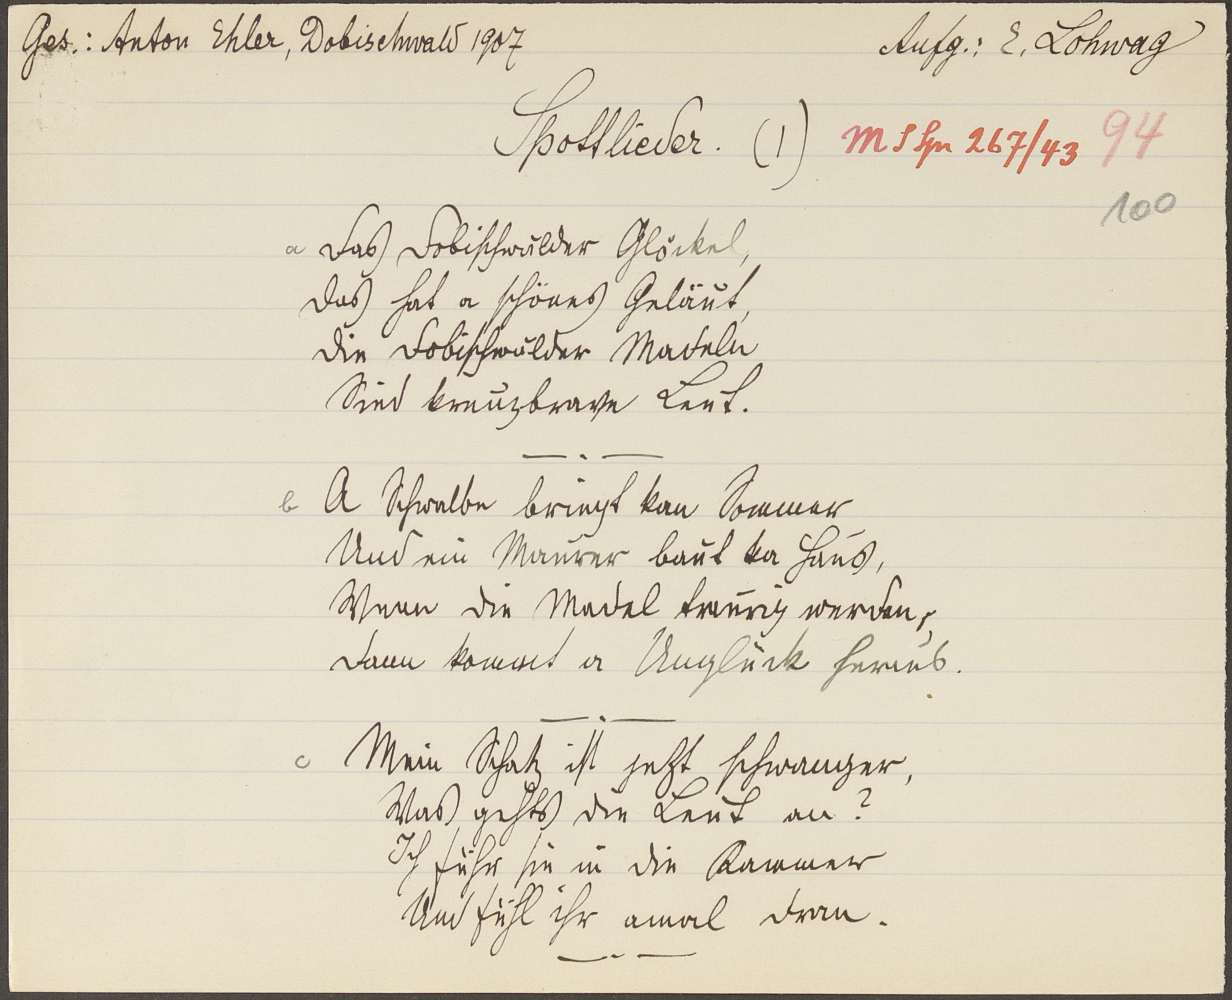 Ges.: Anton Ehler, Dobischwald 1907 Aufg.: E. Lohwag
Spottlieder. (1) 267/43 94
100
a Das Dobischwälder Glöckel,
Das hat a schönes Geläut,
Die Dobischwälder Madeln
Sind kreuzbrave Leut.
b A Schwalbe bringt kan Sommer
Und ein Maurer baut ka Haus,
Wenn die Madel traurig werden,
Dann kommt a Unglück heraus.
c Mein Schatz ist jetzt schwanger,
Was gehts die Leut an?
Ich führ sie in die Kammer
Und fühl ihr amal dran.